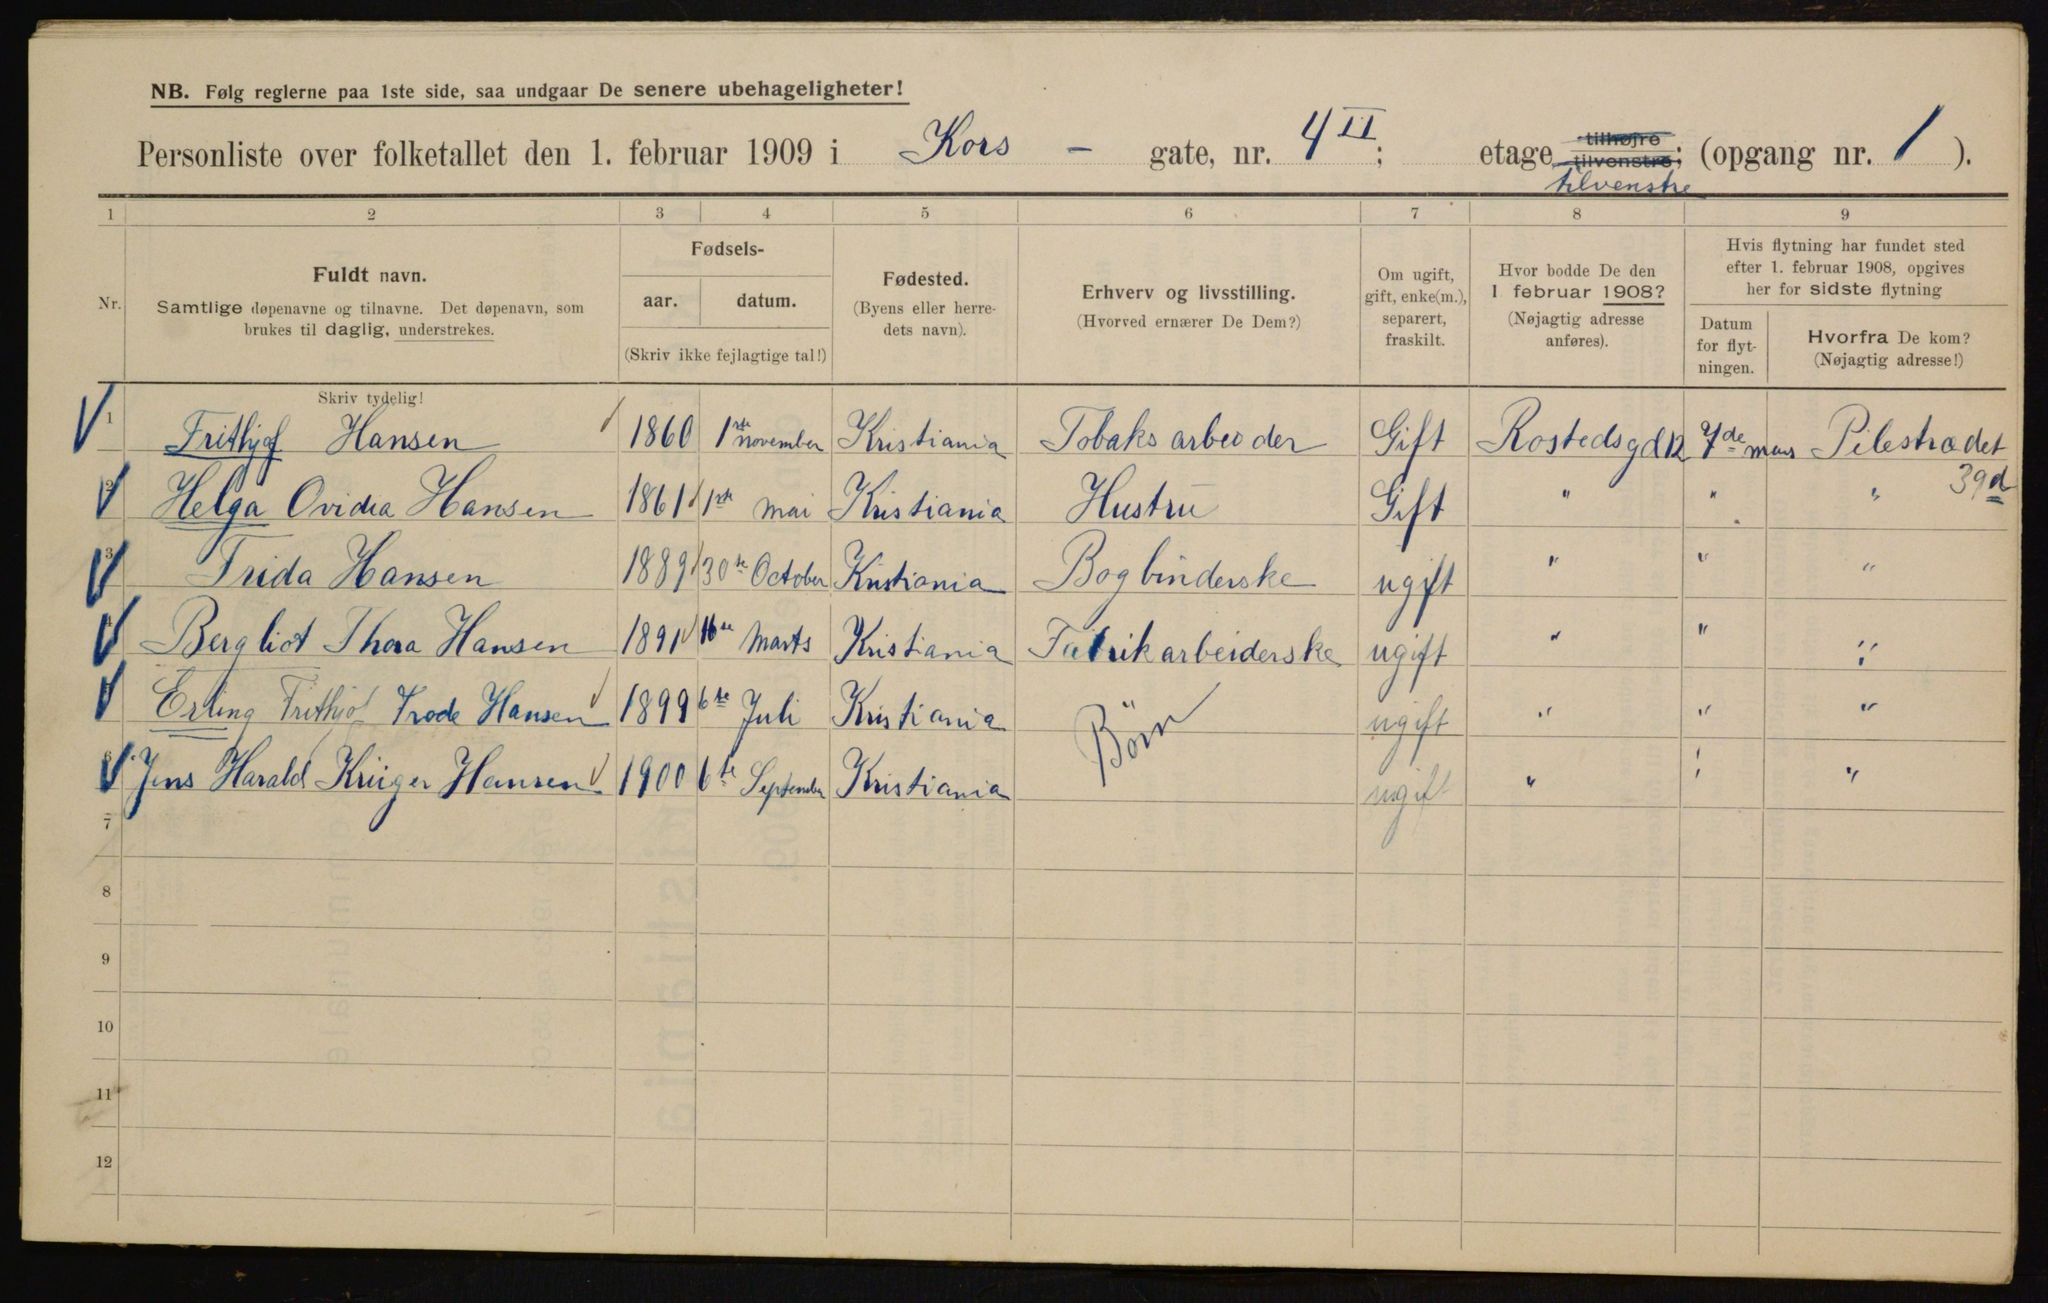 NB. Følg reglerne paa 1ste side, saa undgaar De senere ubehageligheter!
Personliste over folketallet den 1. februar 1909 i Kors - gate, nr. 4 II; etage tilhøjre tilvenstre; (opgang nr. 1).
tilvenstre
1 2 3 4 5 6 7 8 9
Nr.
Fuldt navn.
Samtlige døpenavne og tilnavne. Det døpenavn, som
brukes til daglig, understrekes.
Fødsels-
aar. datum.
(Skriv ikke fejlagtige tal!)
Fødested.
(Byens eller herre-
dets navn).
Erhverv og livsstilling.
(Hvorved ernærer De Dem?)
Om ugift,
gift, enke(m.),
separert,
fraskilt.
Hvor bodde De den
1 februar 1908?
(Nøjagtig adresse
anføres).
Hvis flytning har fundet sted
efter 1. februar 1908, opgives
her for sidste flytning
Datum
for flyt-
ningen.
Hvorfra De kom?
(Nøjagtig adresse!)
Skriv tydelig!
1 Frithjof Hansen 1860 1ste november Kristiania Tobaksarbeider Gift Rostedsgd 12 7de mars Pilestrædet 39d
2 Helga Ovidia Hansen 1861 1ste Mai Kristiania Hustru Gift " " "
3 Frida Hansen 1889 30te October Kristiania Bogbinderske ugift " " "
Bergliot Thora Hansen 1891 16de Marts Kristiania Fabrikarbeiderske ugift " " "
Erling Frithjof Frode Hansen 1899 6te Juli Kristiania Børn ugift " " "
6 Jens Harald Krüger Hansen 1900 6te September Kristiania ugift " " "
7
8
9
10
11
12